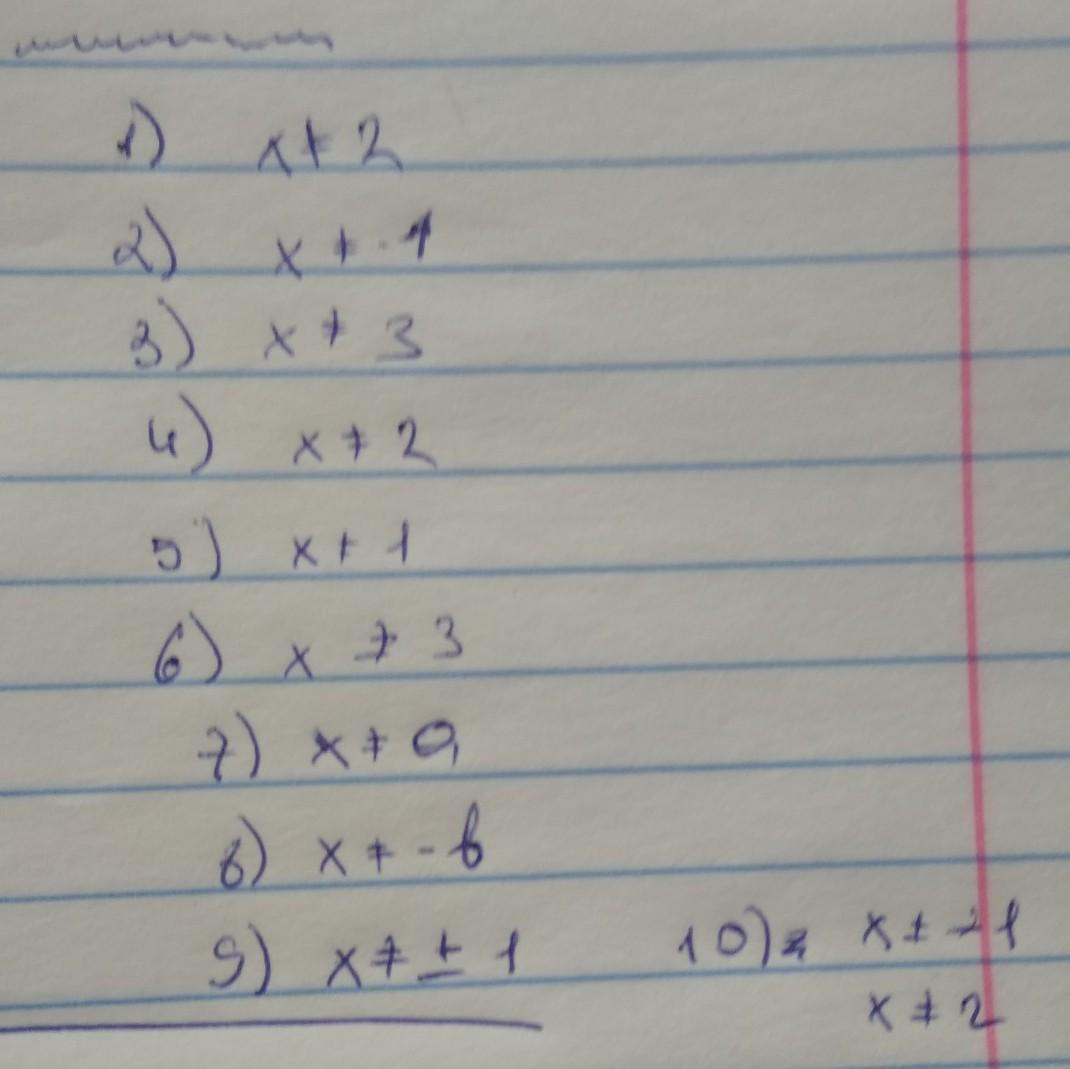 1) x ≠ 2
2) x ≠ -1
3) x ≠ 3
4) x ≠ 2
5) x ≠ 1
6) x ≠ 3
7) x ≠ 0,
8) x ≠ -6
9) x ≠ ± 1
10) x ≠ -1
x ≠ 2